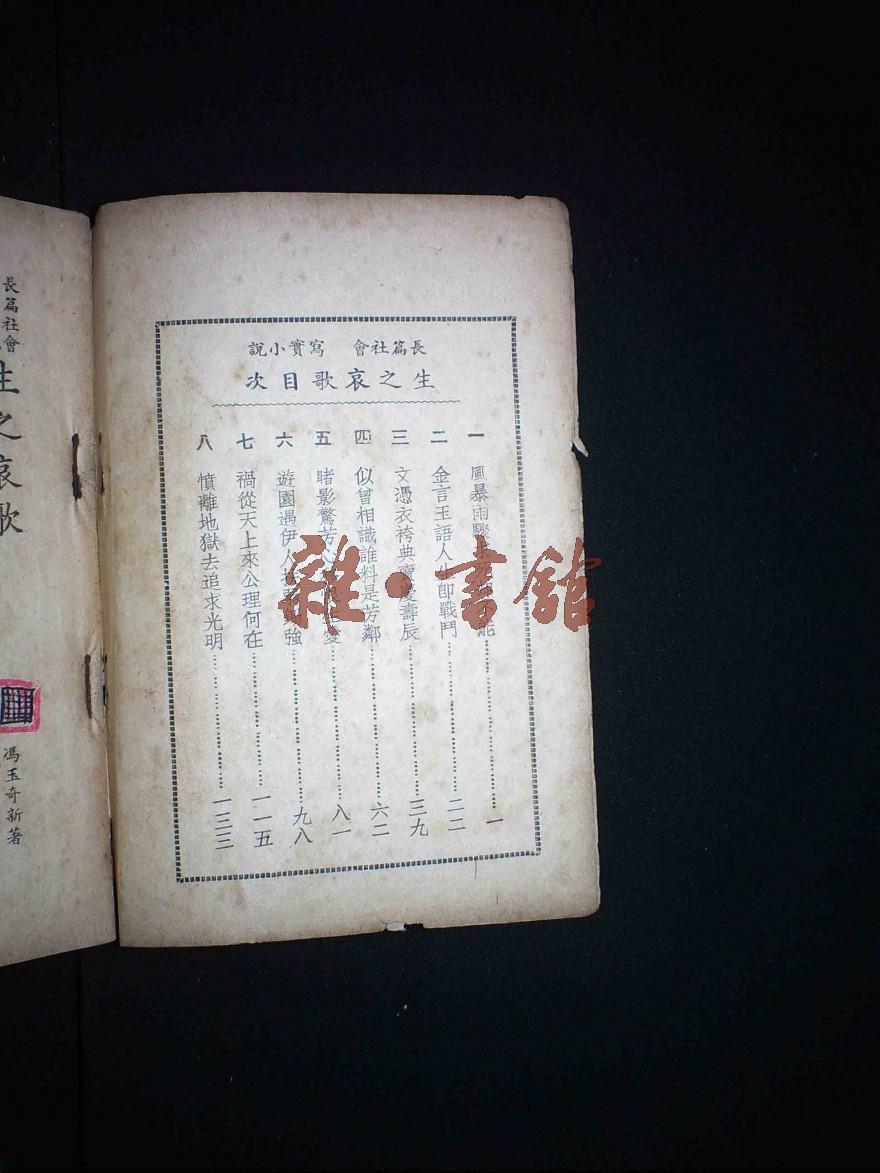 長篇社會 寫實小說
生之哀歌目次
一 風暴雨驟 能……一
二 金言玉語人生即戰鬥……二二
三 文憑衣袴典賣慶壽辰……三九
四 似曾相識誰料是芳鄰……六二
五 睹影驚芳 愛……八一
六 遊園遇伊人 強……九八
七 禍從天上來公理何在……一一五
八 憤離地獄去追求光明……一三三
長篇社會
生之哀歌
馮玉奇新著
雜·書館